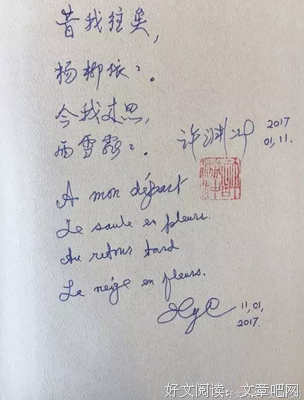 昔我往矣,
杨柳依々。
今我来思,
雨雪霏々。
许渊冲
2017
01,11.
A mon départ
Le saule en pleurs.
Au retour tard
La neige en fleurs.
XYC
11,01,
2017.
好文阅读:文章吧网